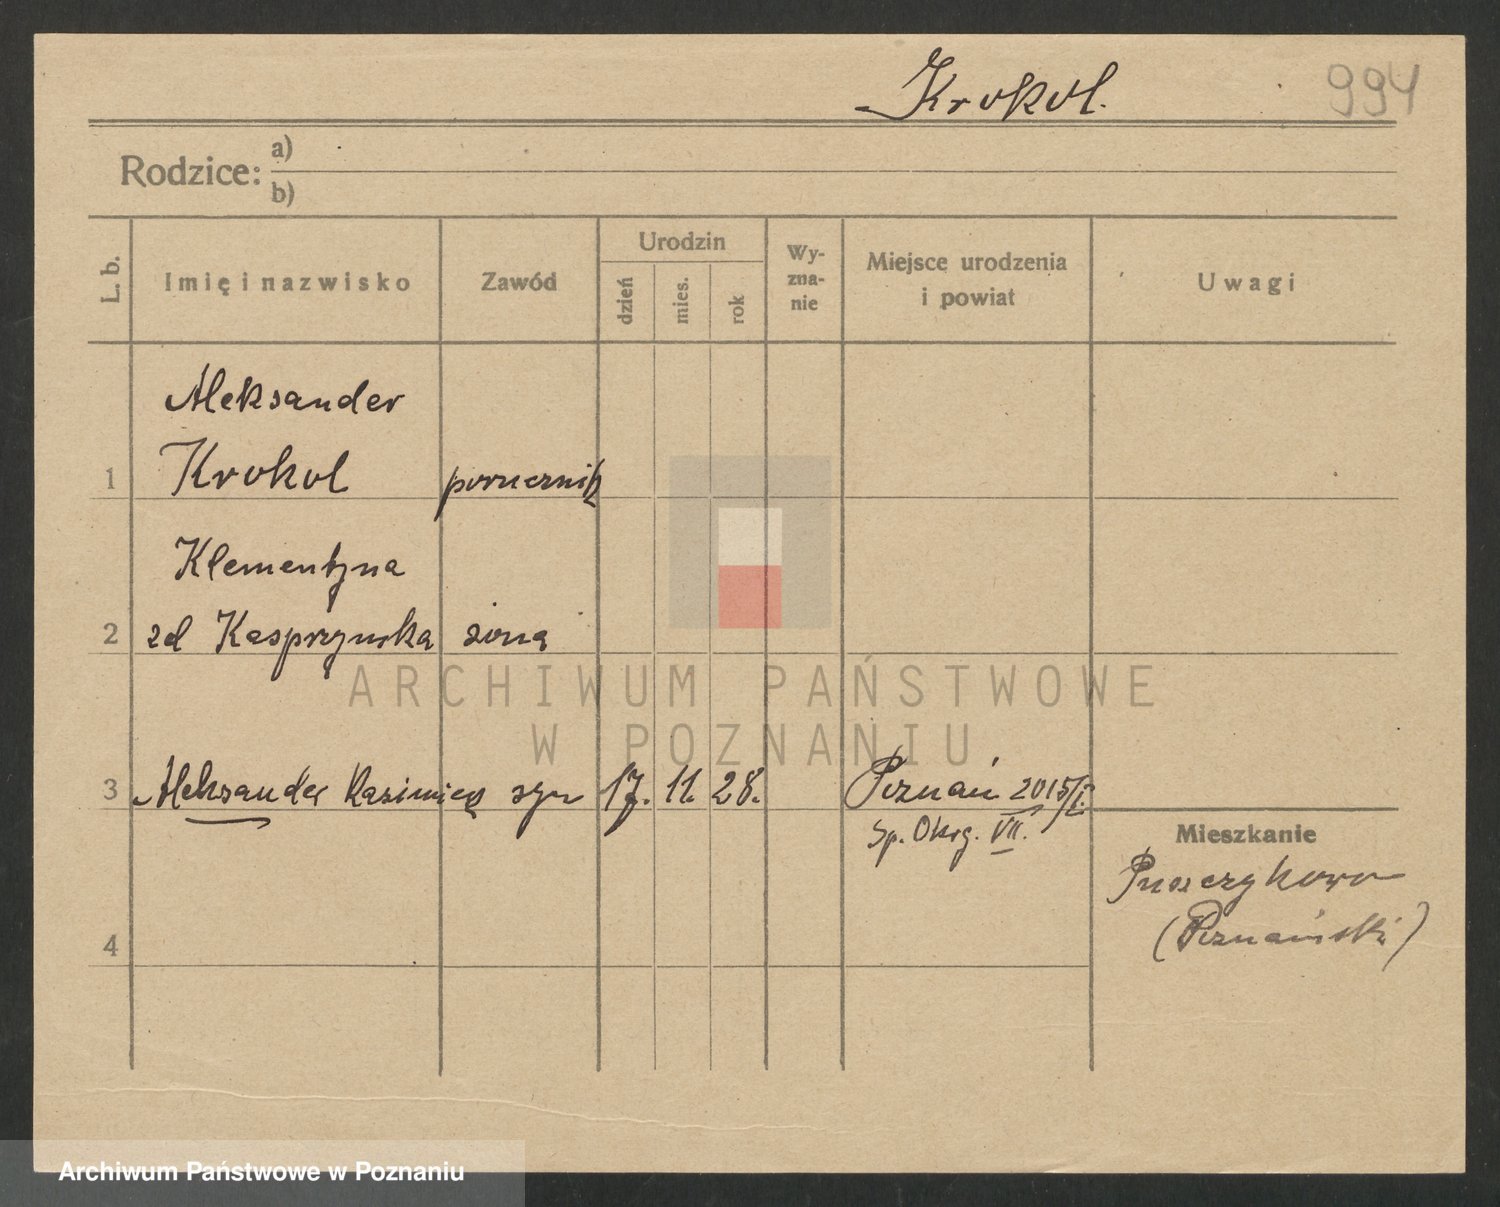 Krokol.
994
Rodzice: a)
b)
L. b.
Imię i nazwisko
Zawód
Urodzin
dzień
mies.
rok
Wy-
zna-
nie
Miejsce urodzenia
i powiat
Uwagi
Aleksander
1 Krokol porucznik
Klementyna
2 zd Kasprzynska żona
3 Aleksander Kazimierz syn 17. 11. 28. Poznań 2015/I.
Sp. Okrg. VII.
Mieszkanie
Puszczykowo
(Poznański)
4
ARCHIWUM PAŃSTWOWE
W POZNANIU
Archiwum Państwowe w Poznaniu